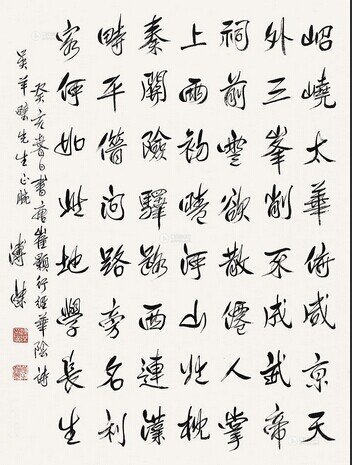 岧嶢太華俯咸京天
外三峯削不成武帝
祠前雲欲散僊人掌
上雨初晴河山北枕
秦關險驛路西連漢
畤平借問路旁名利
客何如此地學長生
癸亥春日書唐崔顥行經華陰詩
吳羊璧先生正腕
溥傑